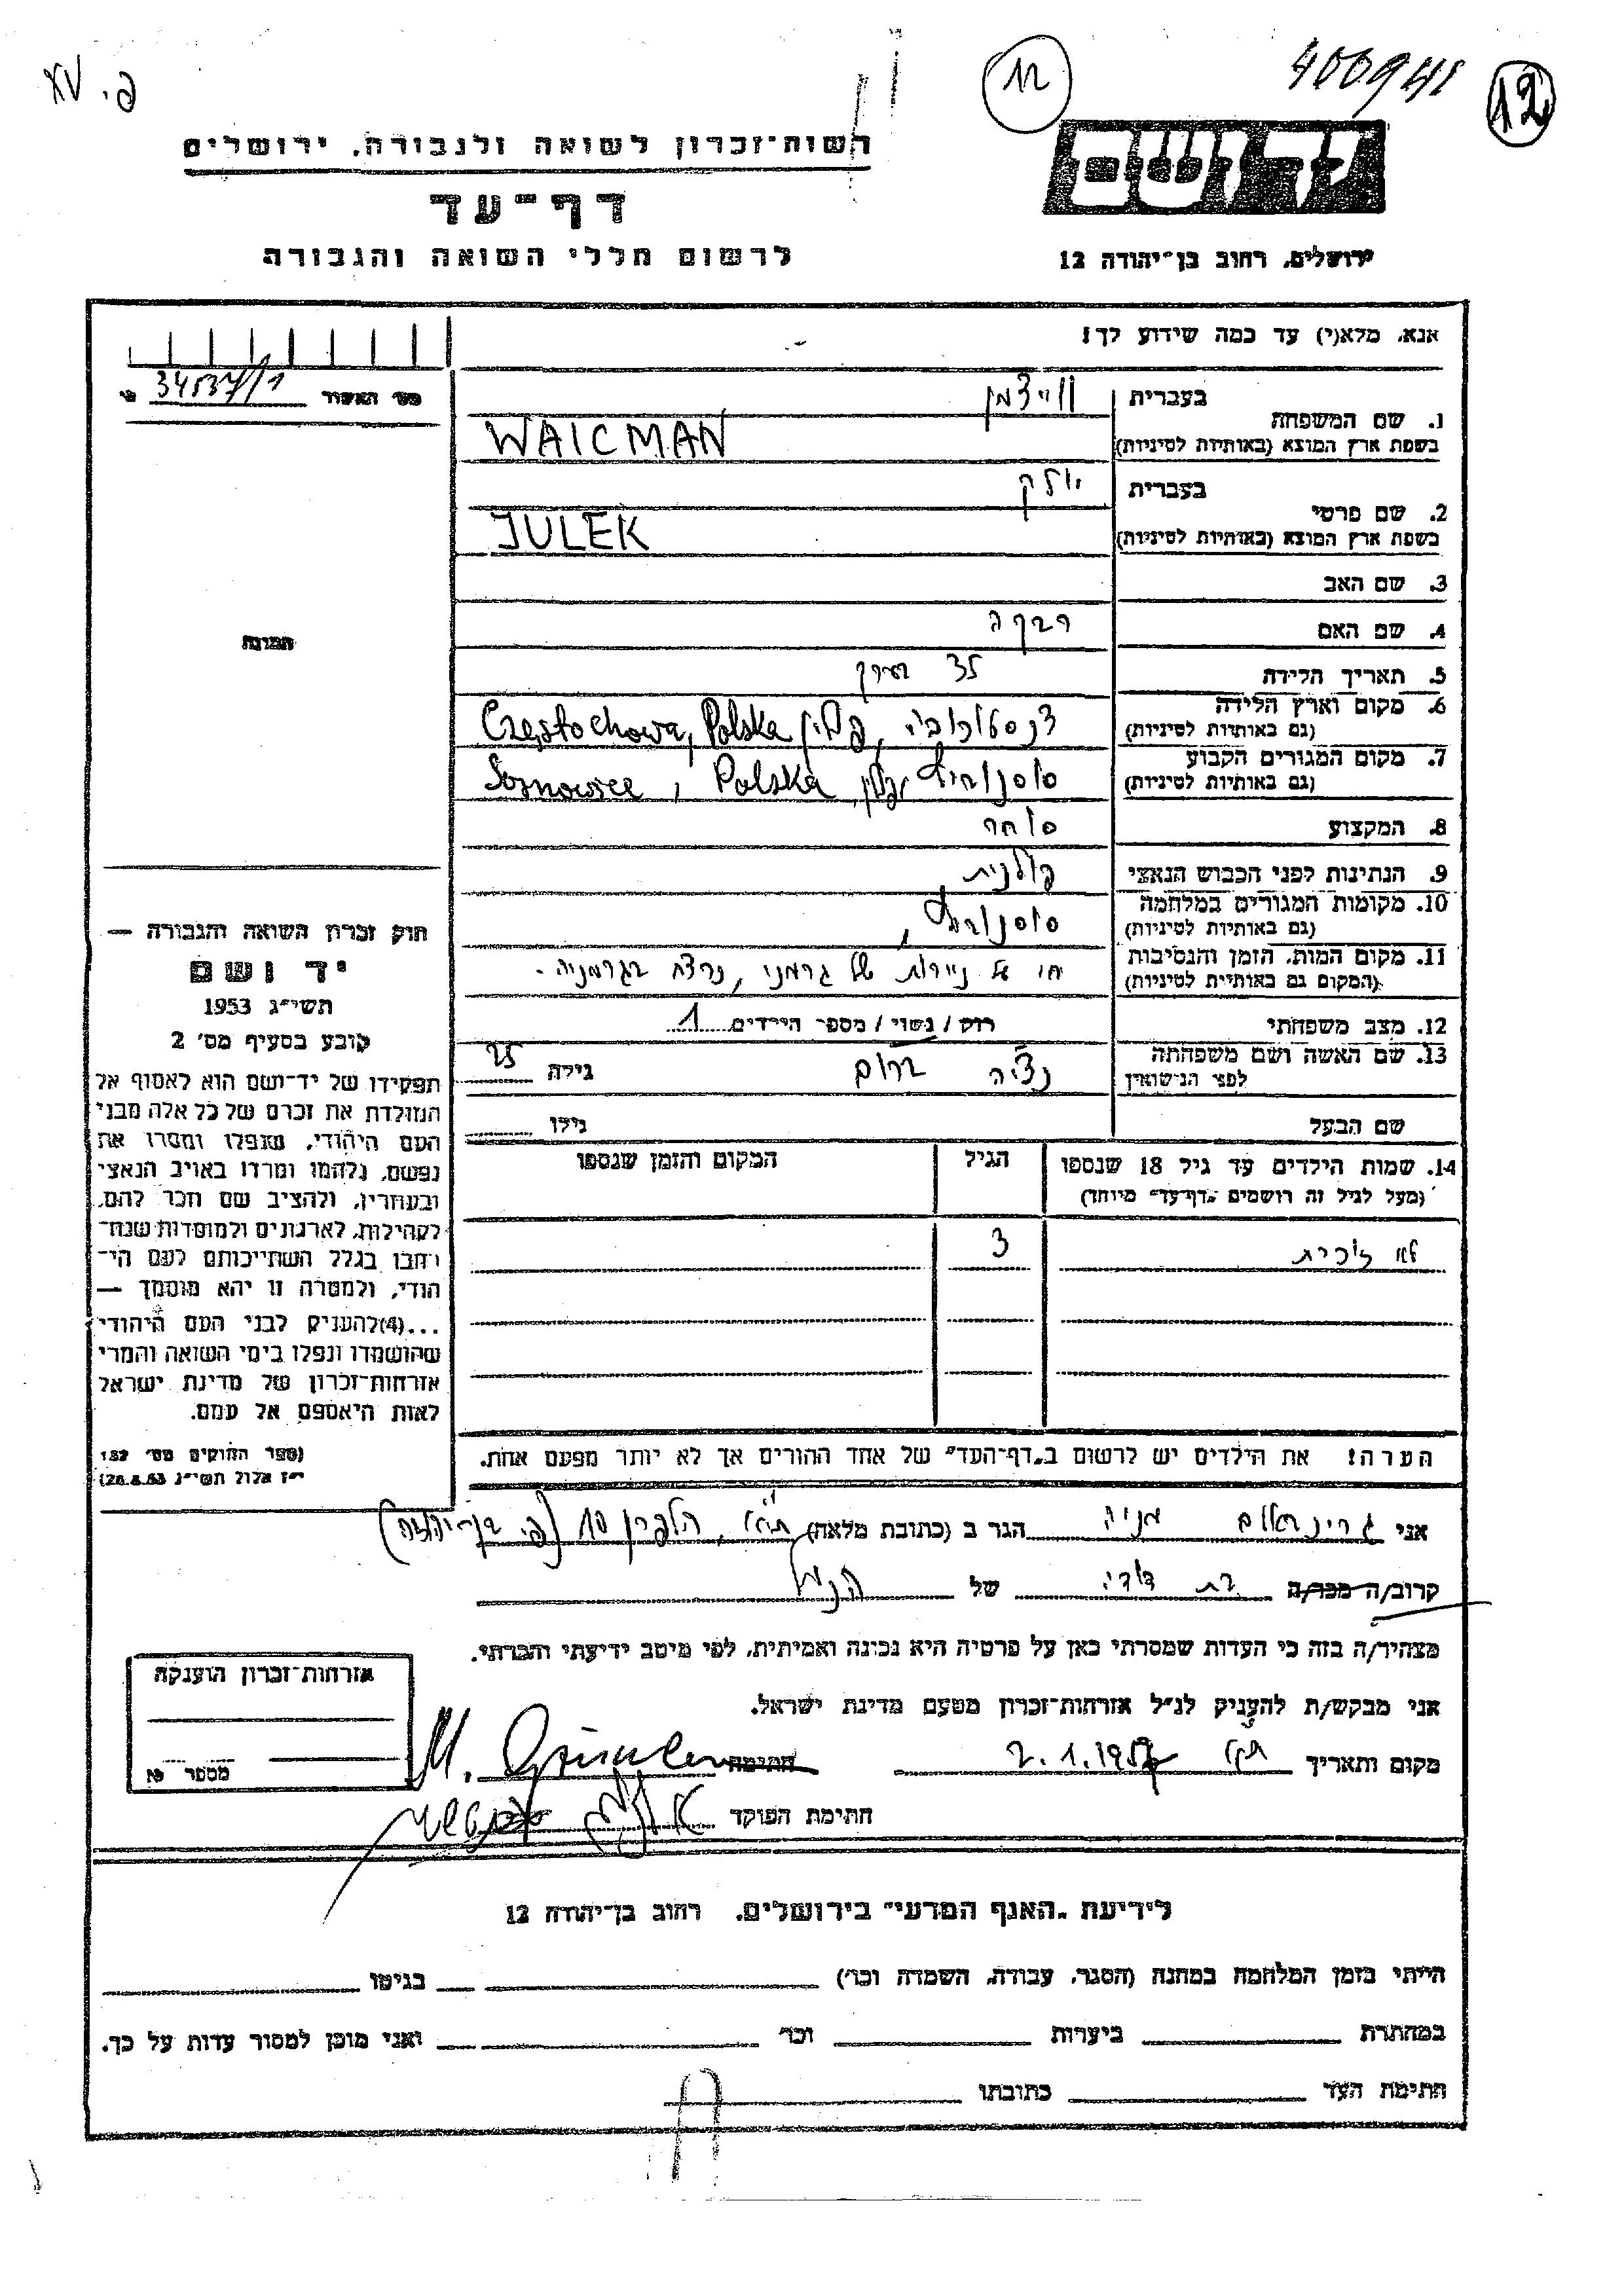 פ. XV
12
400941
12
רשות־זכרון לשואה ולגבורה, ירושלים
דף־עד
לרשום חללי השואה והגבורה
יד ושם
ירושלים, רחוב בן־יהודה 12
אנא, מלא(י) עד כמה שידוע לך!
מס' האשור 34537/1
בעברית ווייצמן
1. שם המשפחה
בשפת ארץ המוצא (באותיות לטיניות) WAICMAN
בעברית יולק
2. שם פרטי
בשפת ארץ המוצא (באותיות לטיניות) JULEK
3. שם האב
4. שם האם רבקה
5. תאריך הלידה 35
6. מקום וארץ הלידה
(גם באותיות לטיניות) פולין Częstochowa, Polska
7. מקום המגורים הקבוע
(גם באותיות לטיניות) סוסנוביץ פולין Sosnowice, Polska
8. המקצוע סוחר
9. הנתינות לפני הכבוש הנאצי פולנית
10. מקומות המגורים במלחמה
(גם באותיות לטיניות) סוסנוביץ,
11. מקום המות, הזמן והנסיבות
(המקום גם באותיות לטיניות) חי על ניירות של גרמני, נרצח בגרמניה.
12. מצב משפחתי רוק / נשוי / מספר הילדים 1
13. שם האשה ושם משפחתה
לפני הנישואין גילה 25
שם הבעל גילו
14. שמות הילדים עד גיל 18 שנספו הגיל המקום והזמן שנספו
(מעל לגיל זה רושמים "דף־עד" מיוחד)
לא זוכרת 3
הערה! את הילדים יש לרשום ב"דף־העד" של אחד ההורים אך לא יותר מפעם אחת.
התמונה
חוק זכרון השואה והגבורה —
יד ושם
תשי"ג 1953
קובע בסעיף מס' 2
תפקידו של יד־ושם הוא לאסוף אל
המולדת את זכרם של כל אלה מבני
העם היהודי, שנפלו ומסרו את
נפשם, נלחמו ומרדו באויב הנאצי
ובעוזריו, ולהציב שם וזכר להם,
לקהילות, לארגונים ולמוסדות שנח־
רבו בגלל השתייכותם לעם הי־
הודי, ולמטרה זו יהא מוסמך —
...(4)להעניק לבני העם היהודי
שהושמדו ונפלו בימי השואה והמרי
אזרחות־זכרון של מדינת ישראל
לאות היאספם אל עמם.
(ספר החוקים מס' 132
י"ז אלול תשי"ג 28.8.53)
אני גרינבאום מניה הגר ב (כתובת מלאה) ת"א, הלפרין 10 (פ. בן־יהודה)
קרוב/ה מכר/ה בת דודי של הנ"ל
מצהיר/ה בזה כי העדות שמסרתי כאן על פרטיה היא נכונה ואמיתית, לפי מיטב ידיעתי והכרתי.
אני מבקש/ת להעניק לנ"ל אזרחות־זכרון מטעם מדינת ישראל.
מקום ותאריך ת"א 2.1.1957 חתימה
חתימת הפוקד
אזרחות־זכרון הוענקה
מספר
לידיעת "האגף המדעי" בירושלים, רחוב בן־יהודה 12
הייתי בזמן המלחמה במחנה (הסגר, עבודה, השמדה וכו') בגיטו
במחתרת ביערות וכו' ואני מוכן למסור עדות על כך.
חתימת העד כתובתו